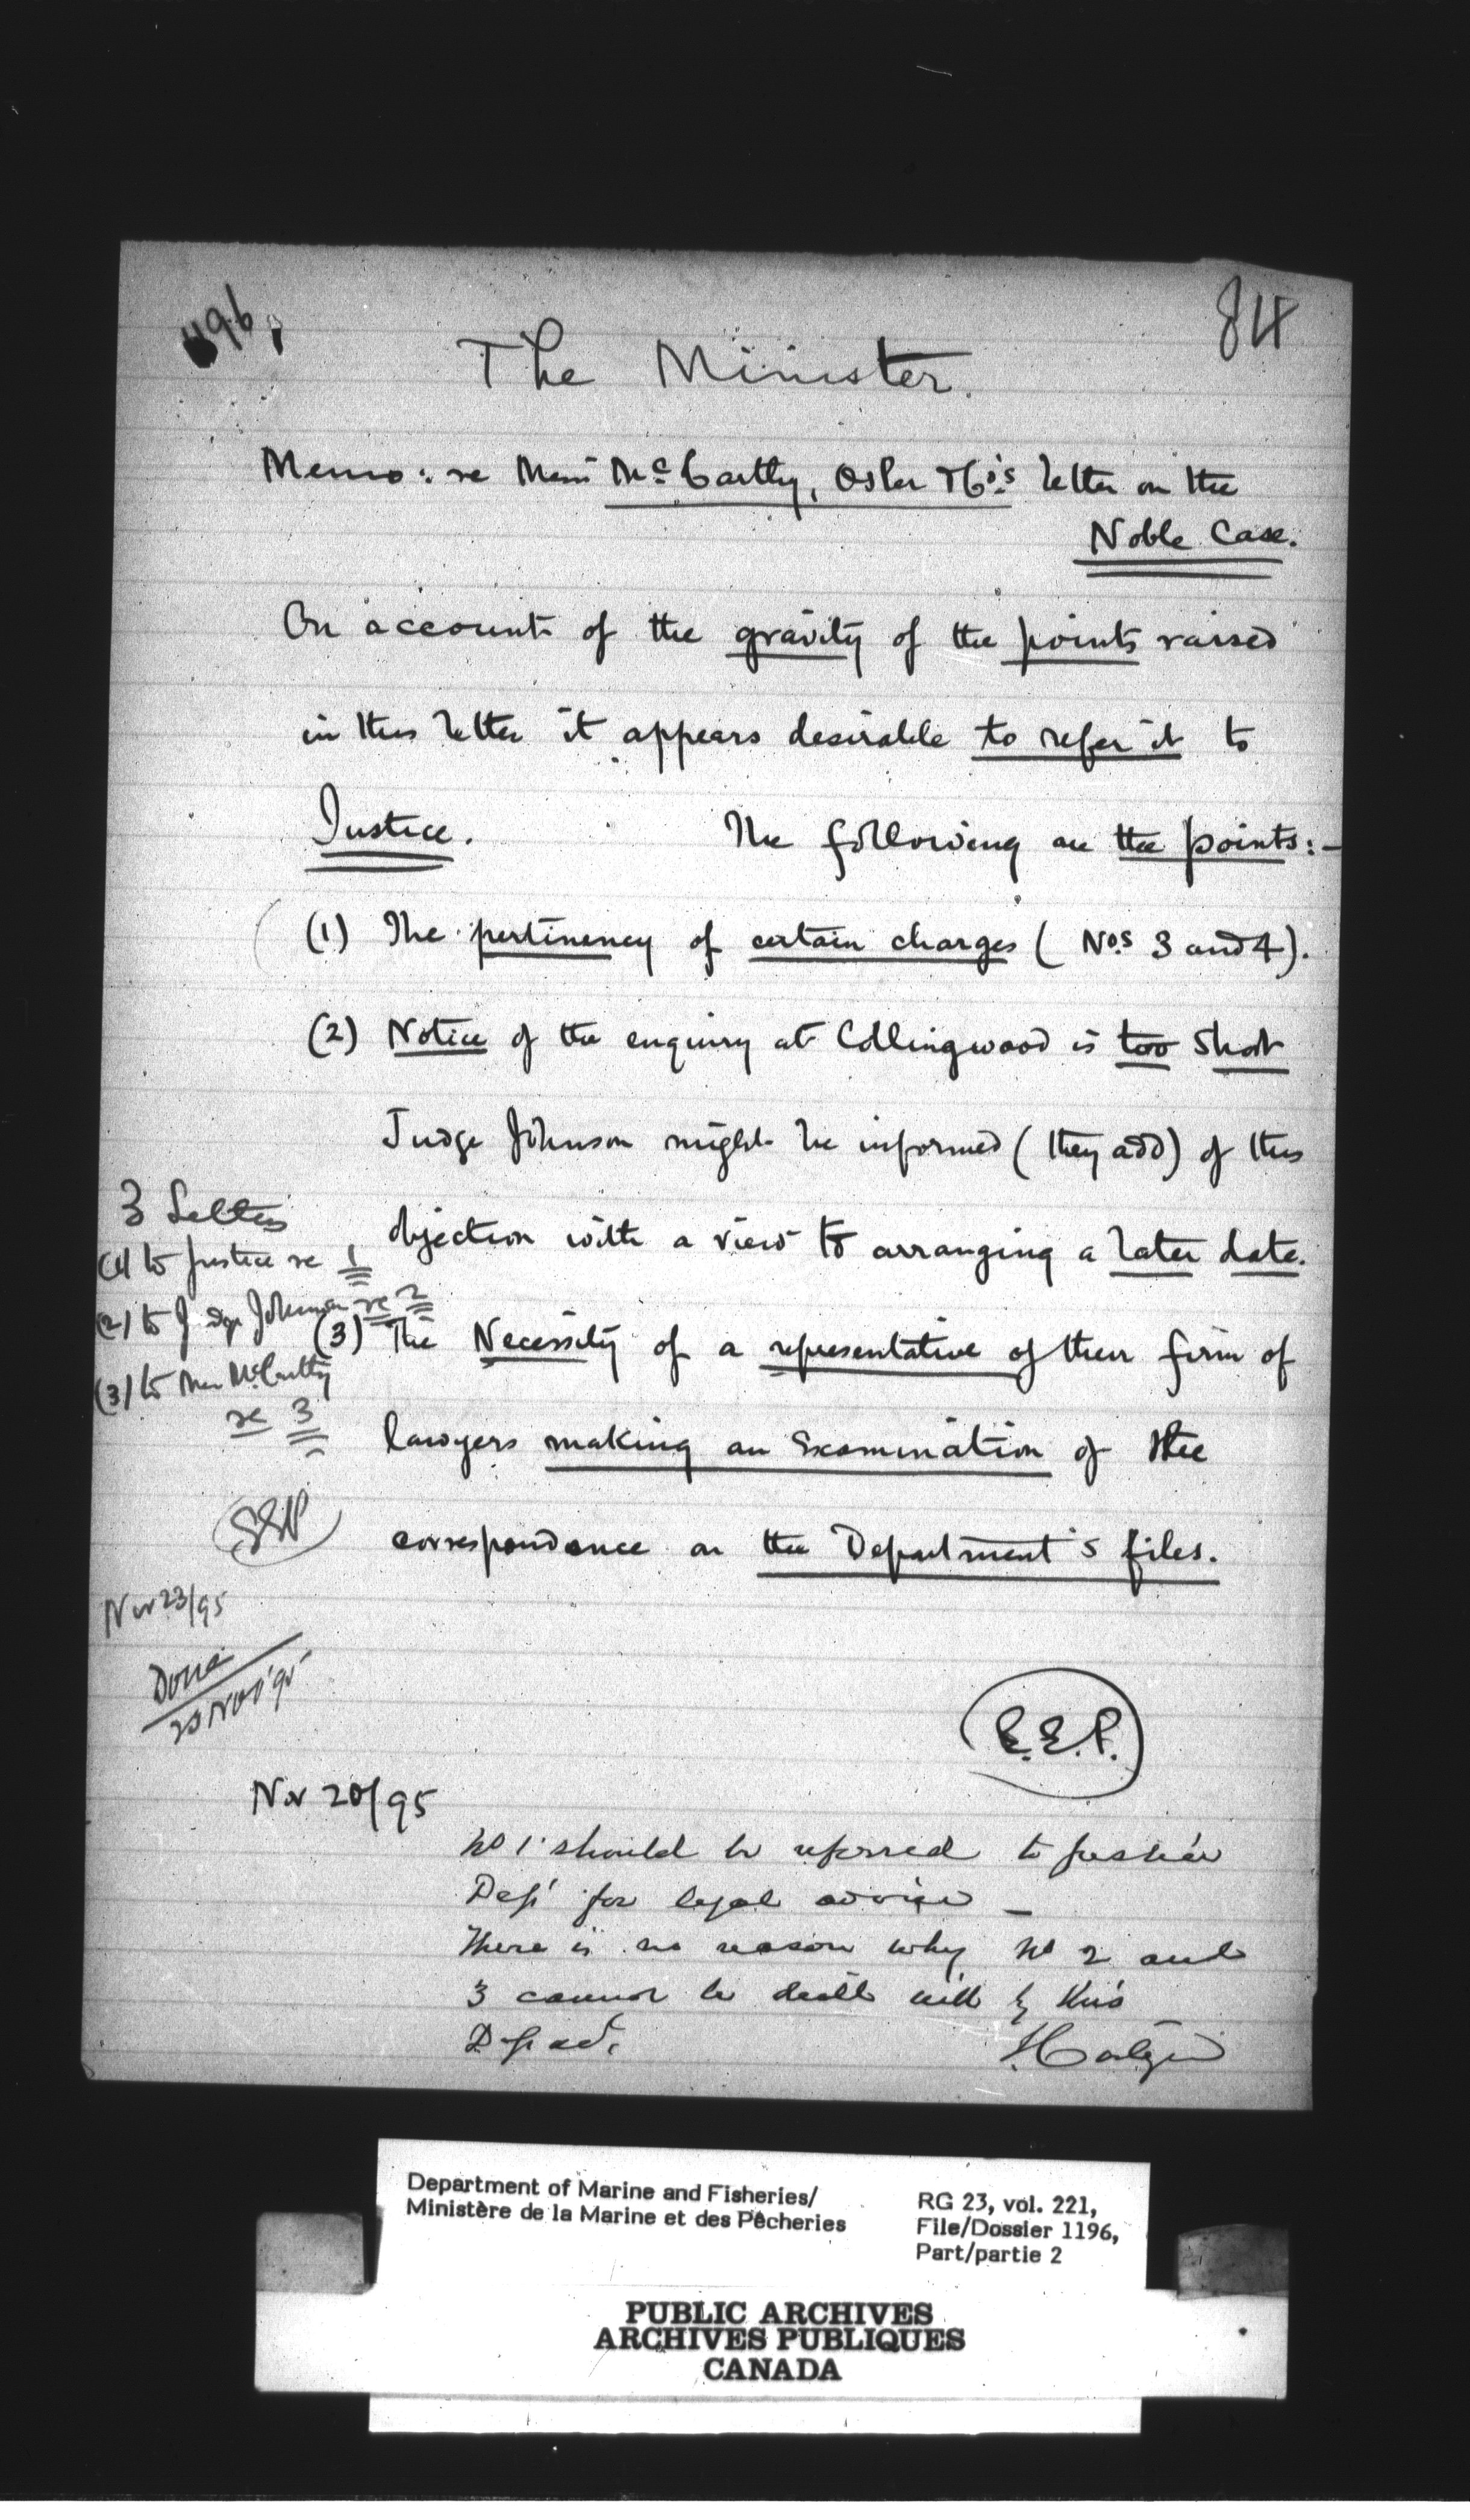 1196
84
The Minister.
Memo: re Messrs McCarthy, Osler & Co's letter on the
Noble Case.
On account of the gravity of the points raised
in this letter it appears desirable to refer it to
Justice. The following are the points:-
(1) The pertinency of certain charges (Nos 3 and 4).
(2) Notice of the enquiry at Collingwood is too short
Judge Johnson might be informed (they add) of this
objection with a view to arranging a later date.
(3) The Necessity of a representative of their firm of
lawyers making an Examination of the
correspondence on the Department's files.
3 Letters
(1) to Justice re 1
(2) to Judge Johnson re 2
(3) to Mess McCarthy
re 3
Nov 23/95
Done
23 Nov '95
E.E.P.
Nov 20/95
No 1 should be referred to Justice
Dept for legal advice -
There is no reason why No 2 and
3 cannot be dealt with by this
Depart.
J. Costigan
Department of Marine and Fisheries/
Ministère de la Marine et des Pêcheries
RG 23, vol. 221,
File/Dossier 1196,
Part/partie 2
PUBLIC ARCHIVES
ARCHIVES PUBLIQUES
CANADA